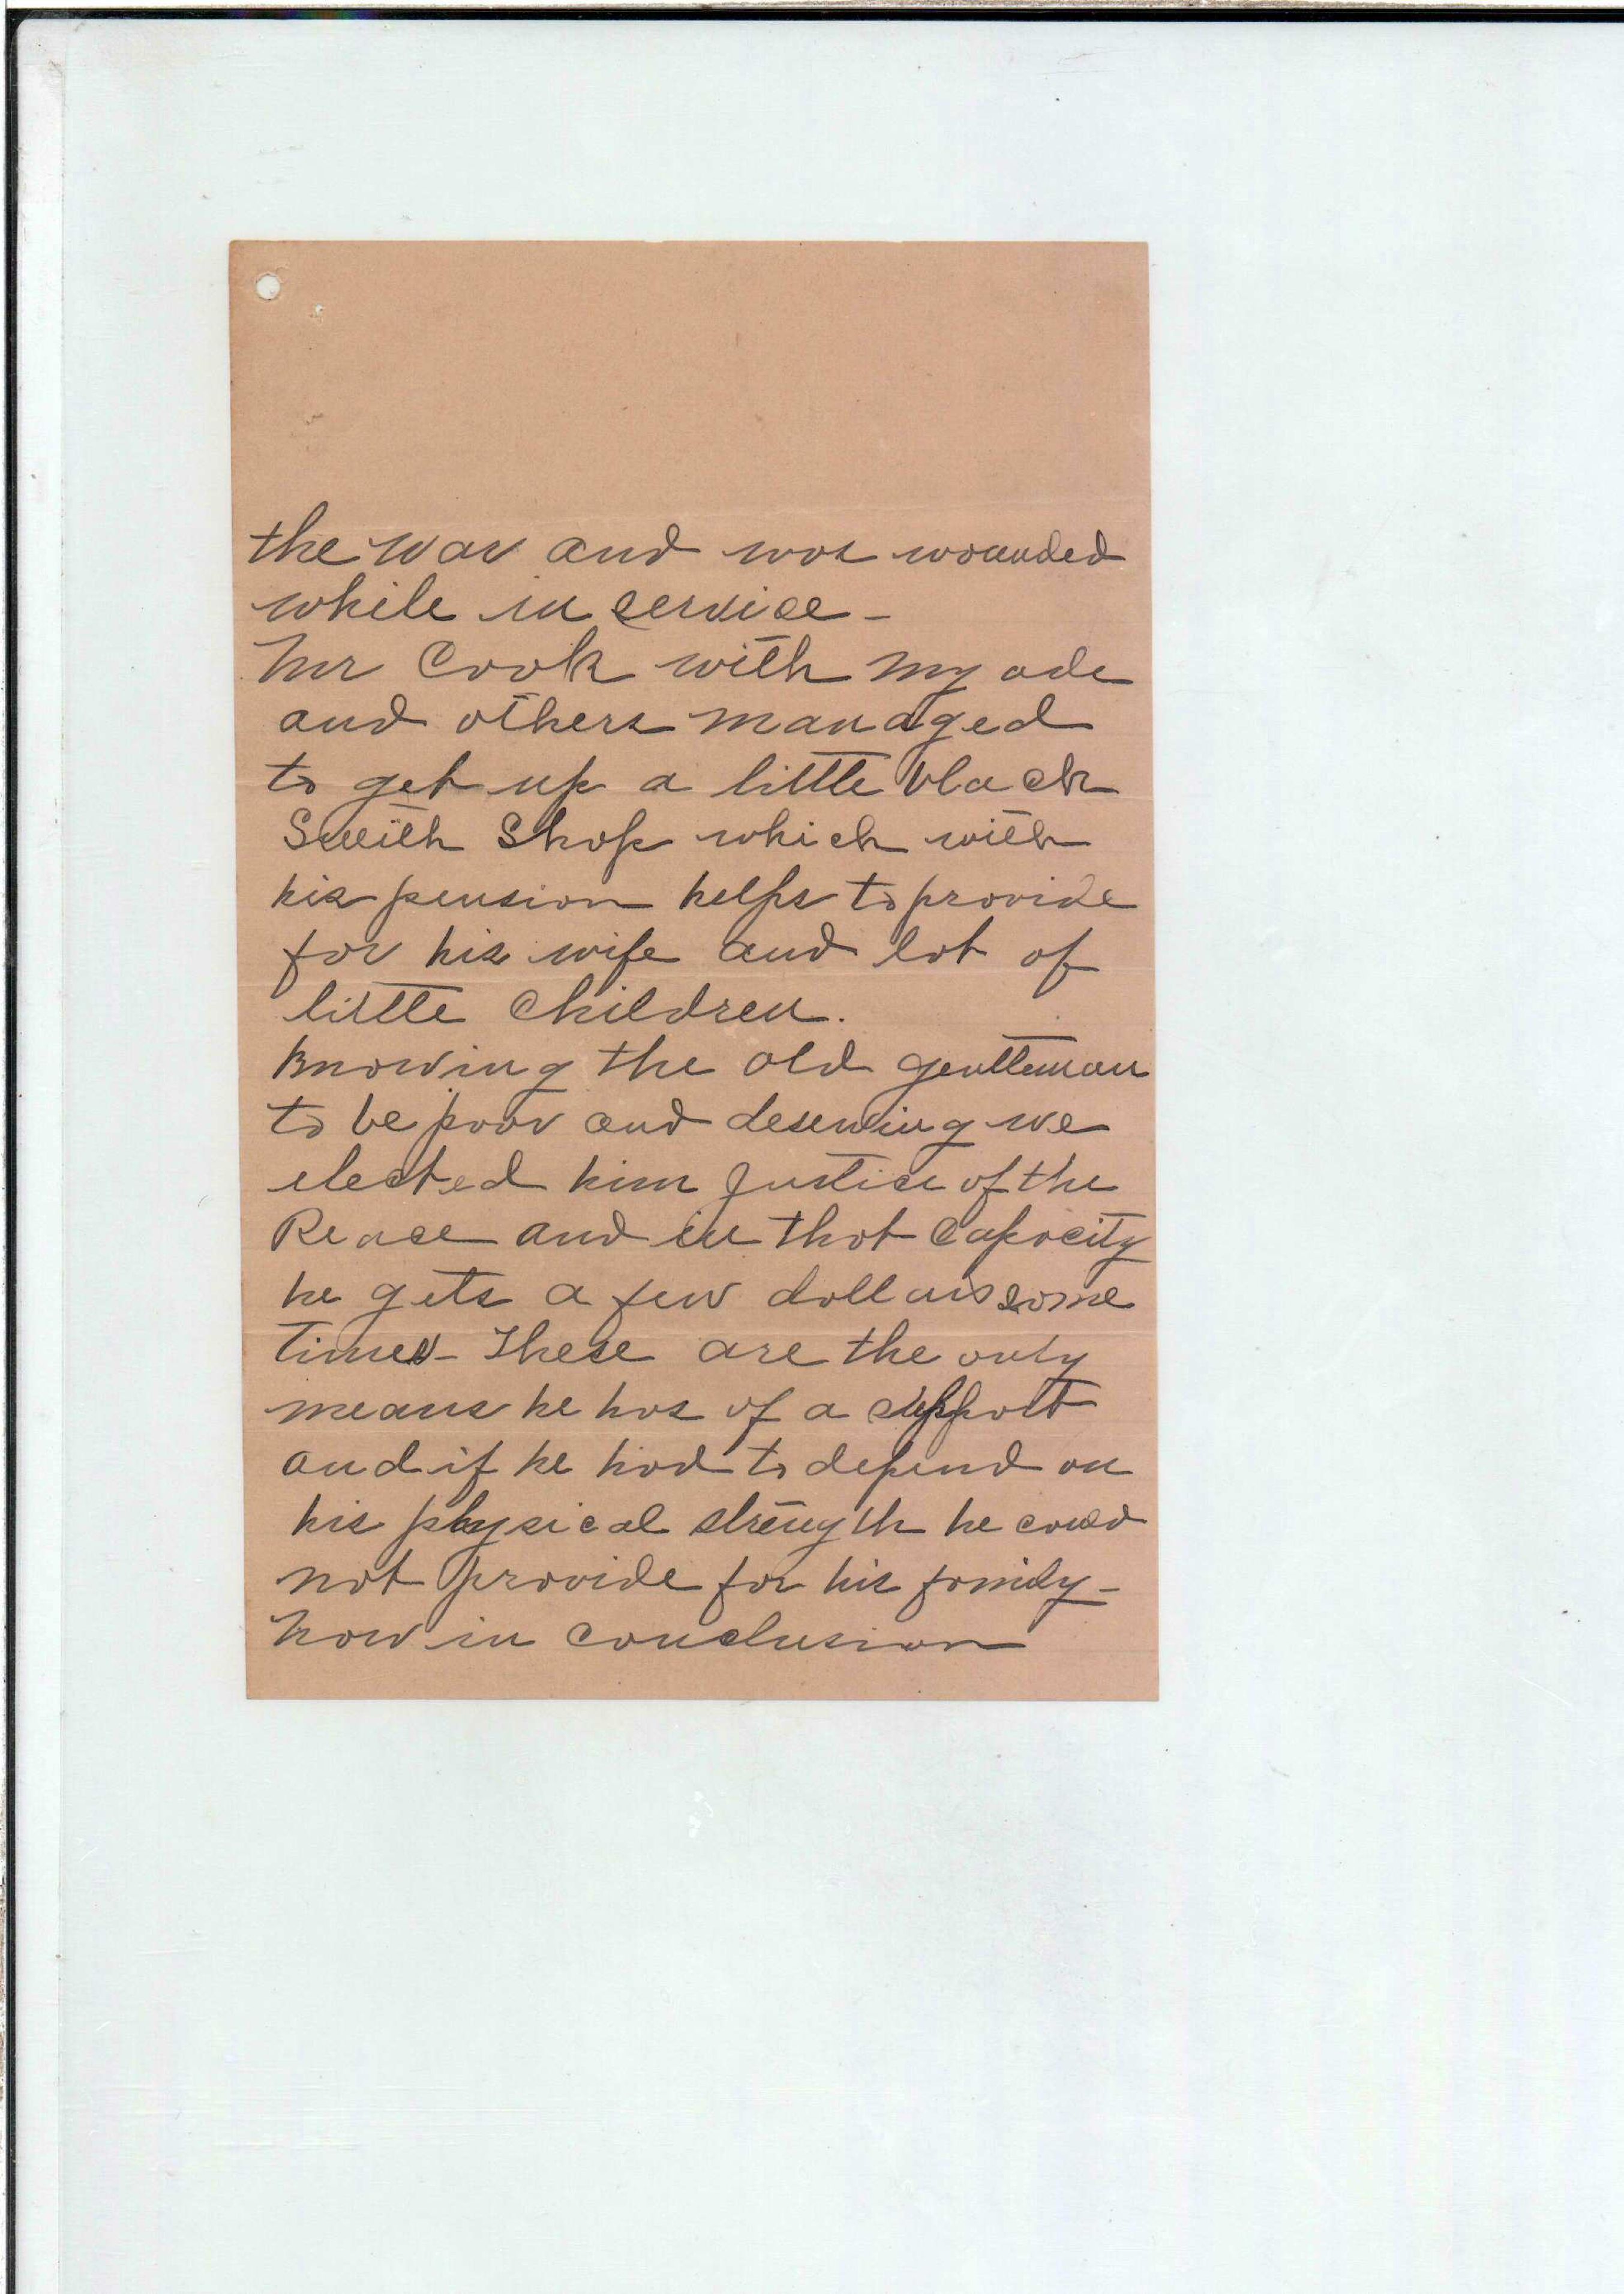 the war and was wounded
while in service -
Mr Cook with my ade
and others managed
to get up a little black
Smith Shop which with
his pension helps to provide
for his wife and lot of
little children.
Knowing the old gentleman
to be poor and deserving we
elected him Justice of the
Peace and in that capacity
he gets a few dollars some
times - These are the only
means he has of a support
and if he had to depend on
his physical strength he could
not provide for his family -
Now in conclusion